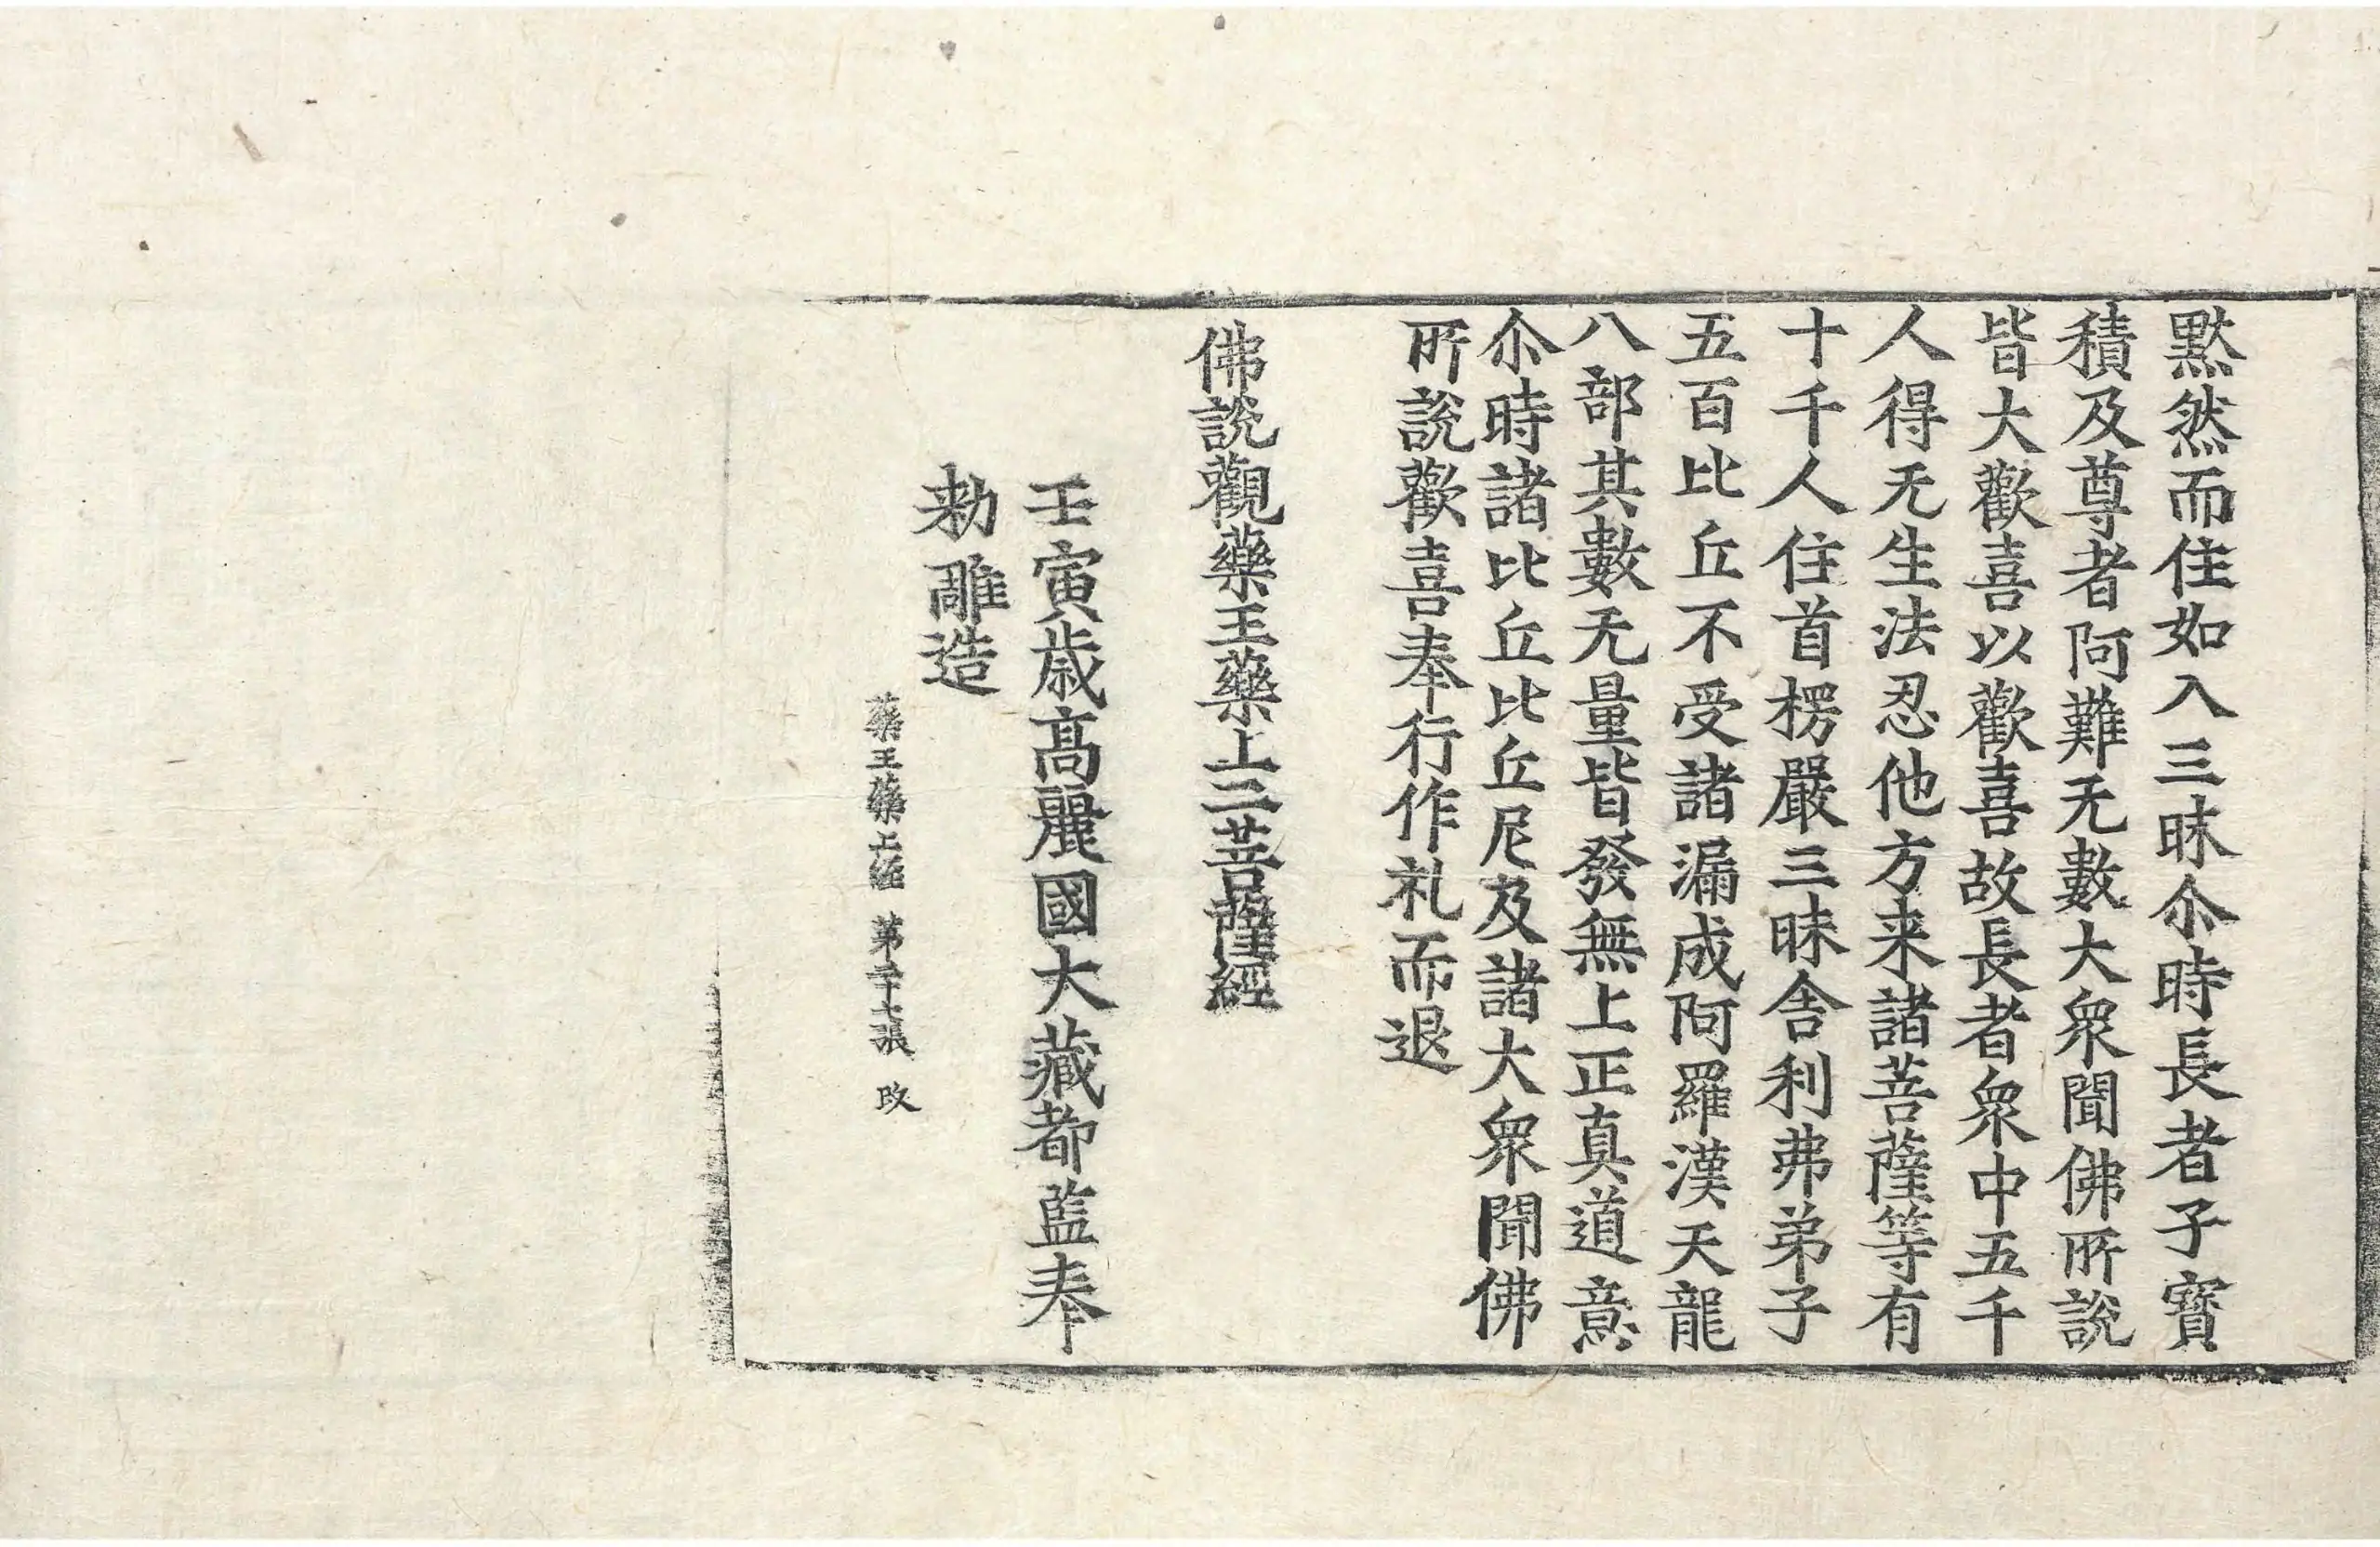 默然而住如入三昧尒時長者子寶
積及尊者阿難无數大衆聞佛所說
皆大歡喜以歡喜故長者衆中五千
人得无生法忍他方来諸菩薩等有
十千人住首楞嚴三昧舍利弗弟子
五百比丘不受諸漏成阿羅漢天龍
八部其數无量皆發無上正真道意
尒時諸比丘比丘尼及諸大衆聞佛
所說歡喜奉行作礼而退
佛說觀藥王藥上二菩薩經
壬寅歲高麗國大藏都監奉
勑雕造
藥王藥上經 第二十七張 改